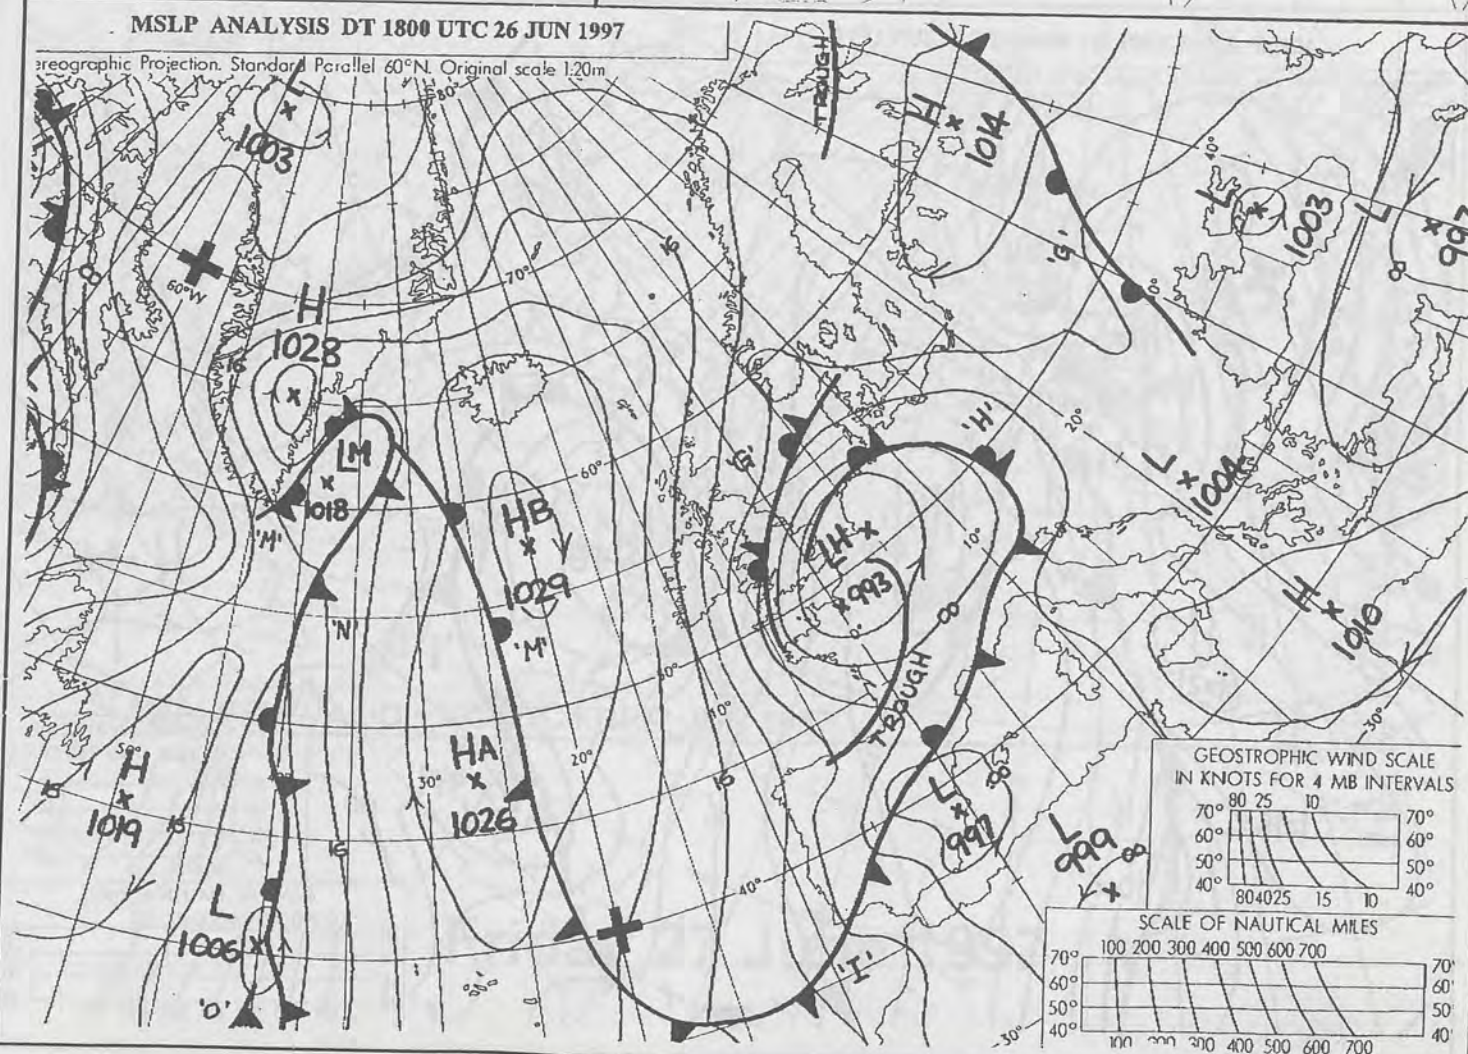 MSLP ANALYSIS DT 1800 UTC 26 JUN 1997
ereographic Projection. Standard Parallel 60°N. Original scale 1:20m
80°
L
1003
TROUGH
H
1014
40°
L
1003
L
997
8
'G'
0°
8
60°W
70°
16
H
1028
16
'H'
20°
'G'
L
1004
LM
1018
'M'
60°
HB
1029
LH
993
0°
10°
8
H
1010
'N'
'M'
50°
10°
TROUGH
30°
50°
H
1019
16
16
40°
30°
HA
1026
20°
16
16
L
997
8
L
999
8
40°
L
1006
'O'
'I'
30°
GEOSTROPHIC WIND SCALE
IN KNOTS FOR 4 MB INTERVALS
80 25 10
70° 70°
60° 60°
50° 50°
40° 40°
80 40 25 15 10
SCALE OF NAUTICAL MILES
100 200 300 400 500 600 700
70° 70°
60° 60°
50° 50°
40° 40°
100 200 300 400 500 600 700